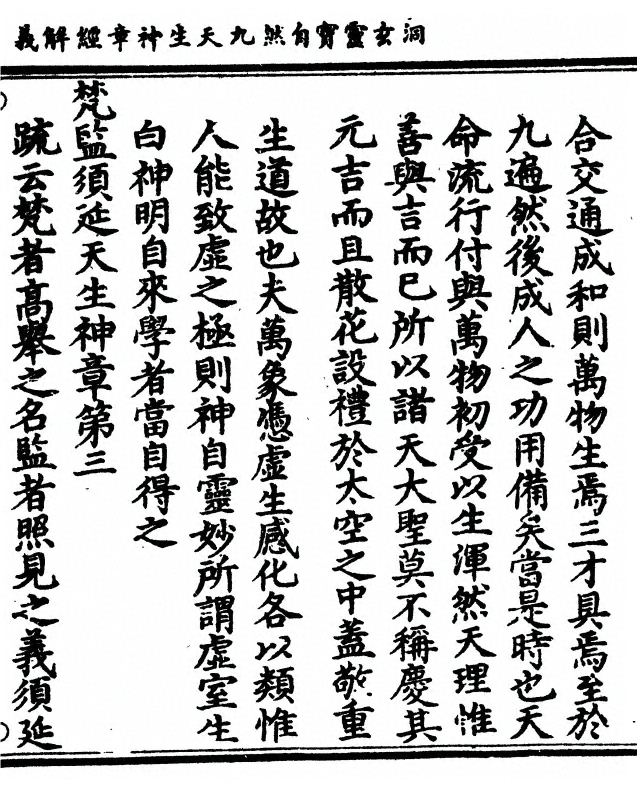 洞玄靈寶自然九天生神章經解義
合交通成和則萬物生焉三才具焉至於
九遍然後成人之功用備矣當是時也天
命流行付與萬物初受以生渾然天理惟
善與吉而已所以諸天大聖莫不稱慶其
元吉而且散花設禮於太空之中蓋敬重
生道故也夫萬象憑虛生感化各以類惟
人能致虛之極則神自靈妙所謂虛室生
白神明自來學者當自得之
梵監須延天生神章第三
疏云梵者高舉之名監者照見之義須延